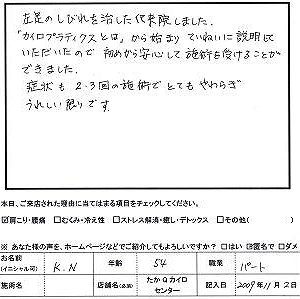 左足のしびれを治したく来院しました。
「カイロプラティクスとは」から始まりていねいに説明して
いただいたので初めから安心して施術を受けることが
できました。
症状も2・3回の施術でとてもやわらぎ
うれしい限りです。
本日、ご来店された理由に当てはまる項目をチェックしてください。
☑肩こり・腰痛 □むくみ・冷え性 □ストレス解消・癒し・デトックス □その他( )
※ あなた様の声を、ホームページなどでご紹介してもよろしいですか? □はい ☑匿名で □ダメ
お名前(イニシャル可) K.N 年齢 54 職業 パート
施術名 店舗名(必須) たかQカイロセンター 記入日 2009年11月2日